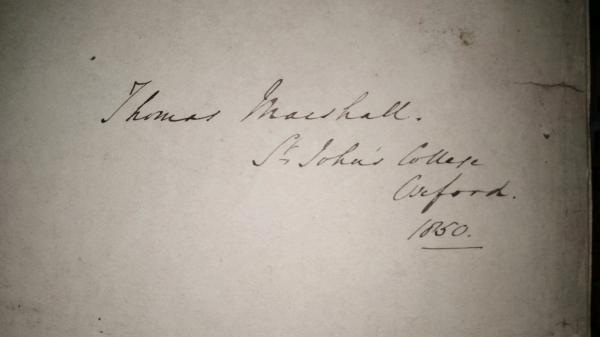 Thomas Marshall.
St John's College
Oxford.
1850.